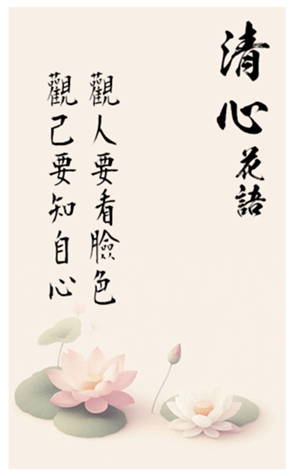 清心花語
觀人要看臉色
觀己要知自心